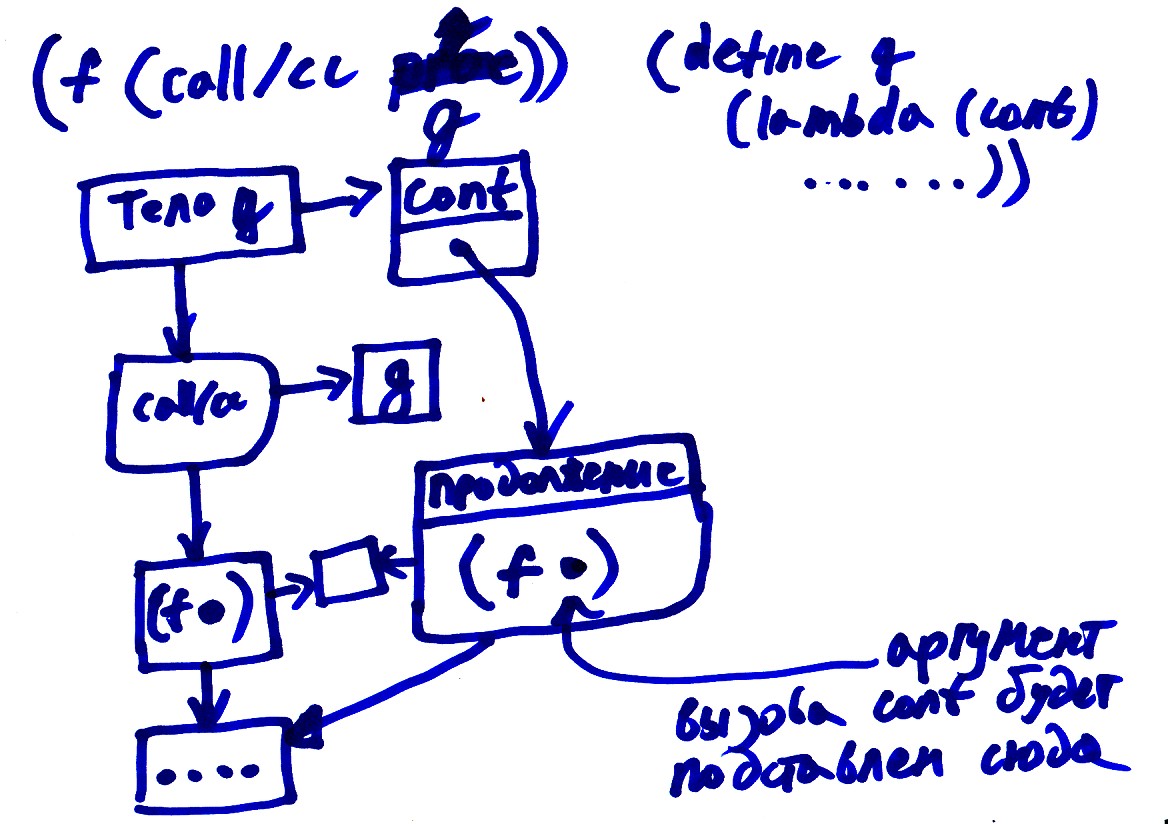 (f (call/cc g))
(define g
(lambda (cont)
.... . ...))
Тело g
cont
call/cc
g
продолжение
(f •)
(f •)
....
аргумент
вызова cont будет
подставлен сюда